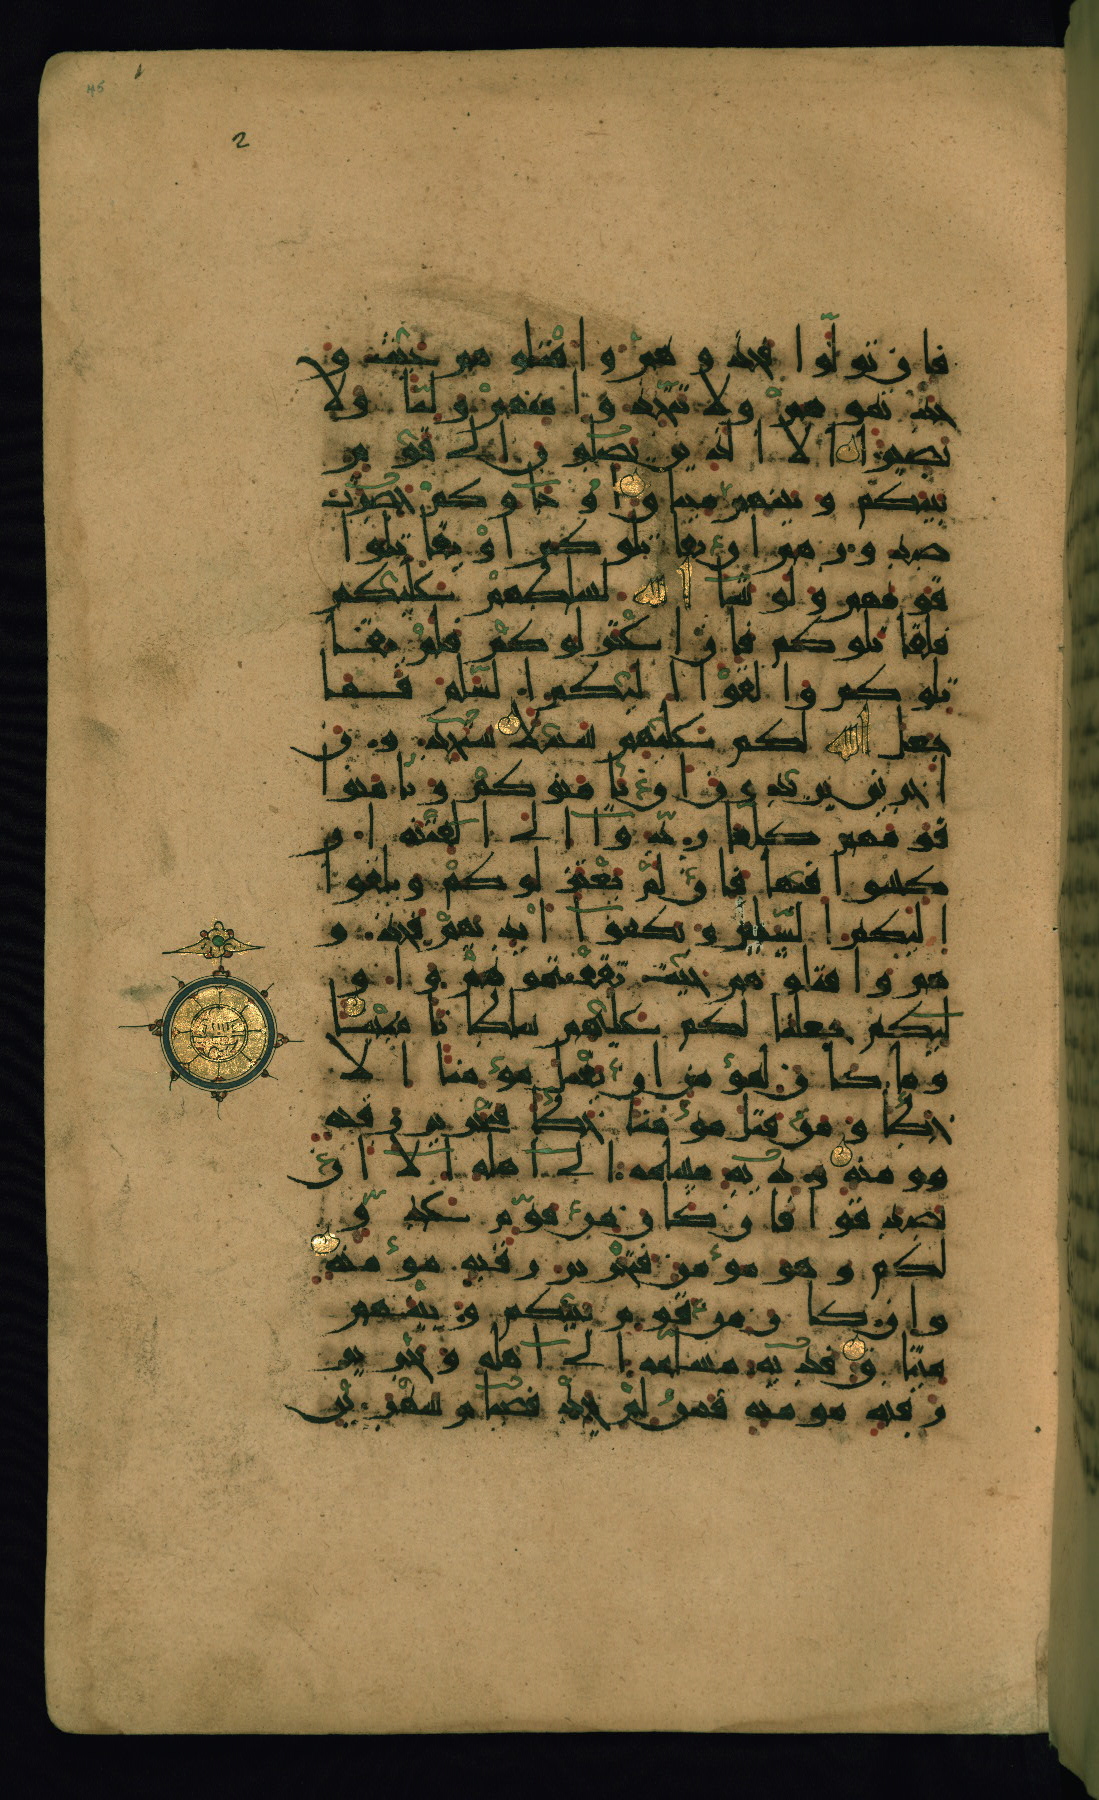 45
2
فان تولوا فخذوهم واقتلوهم حيث و
جدتموهم ولا تتخذوا منهم وليا ولا
نصيرا الا الذين يصلون الى قوم
بينكم وبينهم ميثاق او جاوكم حصرت
صدورهم ان يقاتلوكم او يقاتلوا
قومهم ولو شا الله لسلطهم عليكم
فلقاتلوكم فان اعتزلوكم فلم يقا
تلوكم والقوا اليكم السلم فما
جعل الله لكم عليهم سبيلا ستجدون
اخرين يريدون ان يامنوكم ويامنوا
قومهم كلما ردوا الى الفتنه ار
كسوا فيها فان لم يعتزلوكم ويلقوا
اليكم السلم ويكفوا ايديهم فخذو
هم واقتلوهم حيث ثقفتموهم واو
ليكم جعلنا لكم عليهم سلطانا مبينا
وما كان لمؤمن ان يقتل مؤمنا الا
خطا ومن قتل مؤمنا خطا فتحرير رقبه
مومنه وديه مسلمه الى اهله الا ان
يصدقوا فان كان من قوم عدو
لكم وهو مؤمن فتحرير رقبه مؤمنه
وان كان من قوم بينكم وبينهم
ميثاق فديه مسلمه الى اهله وتحرير
رقبه مومنه فمن لم يجد فصيام شهرين